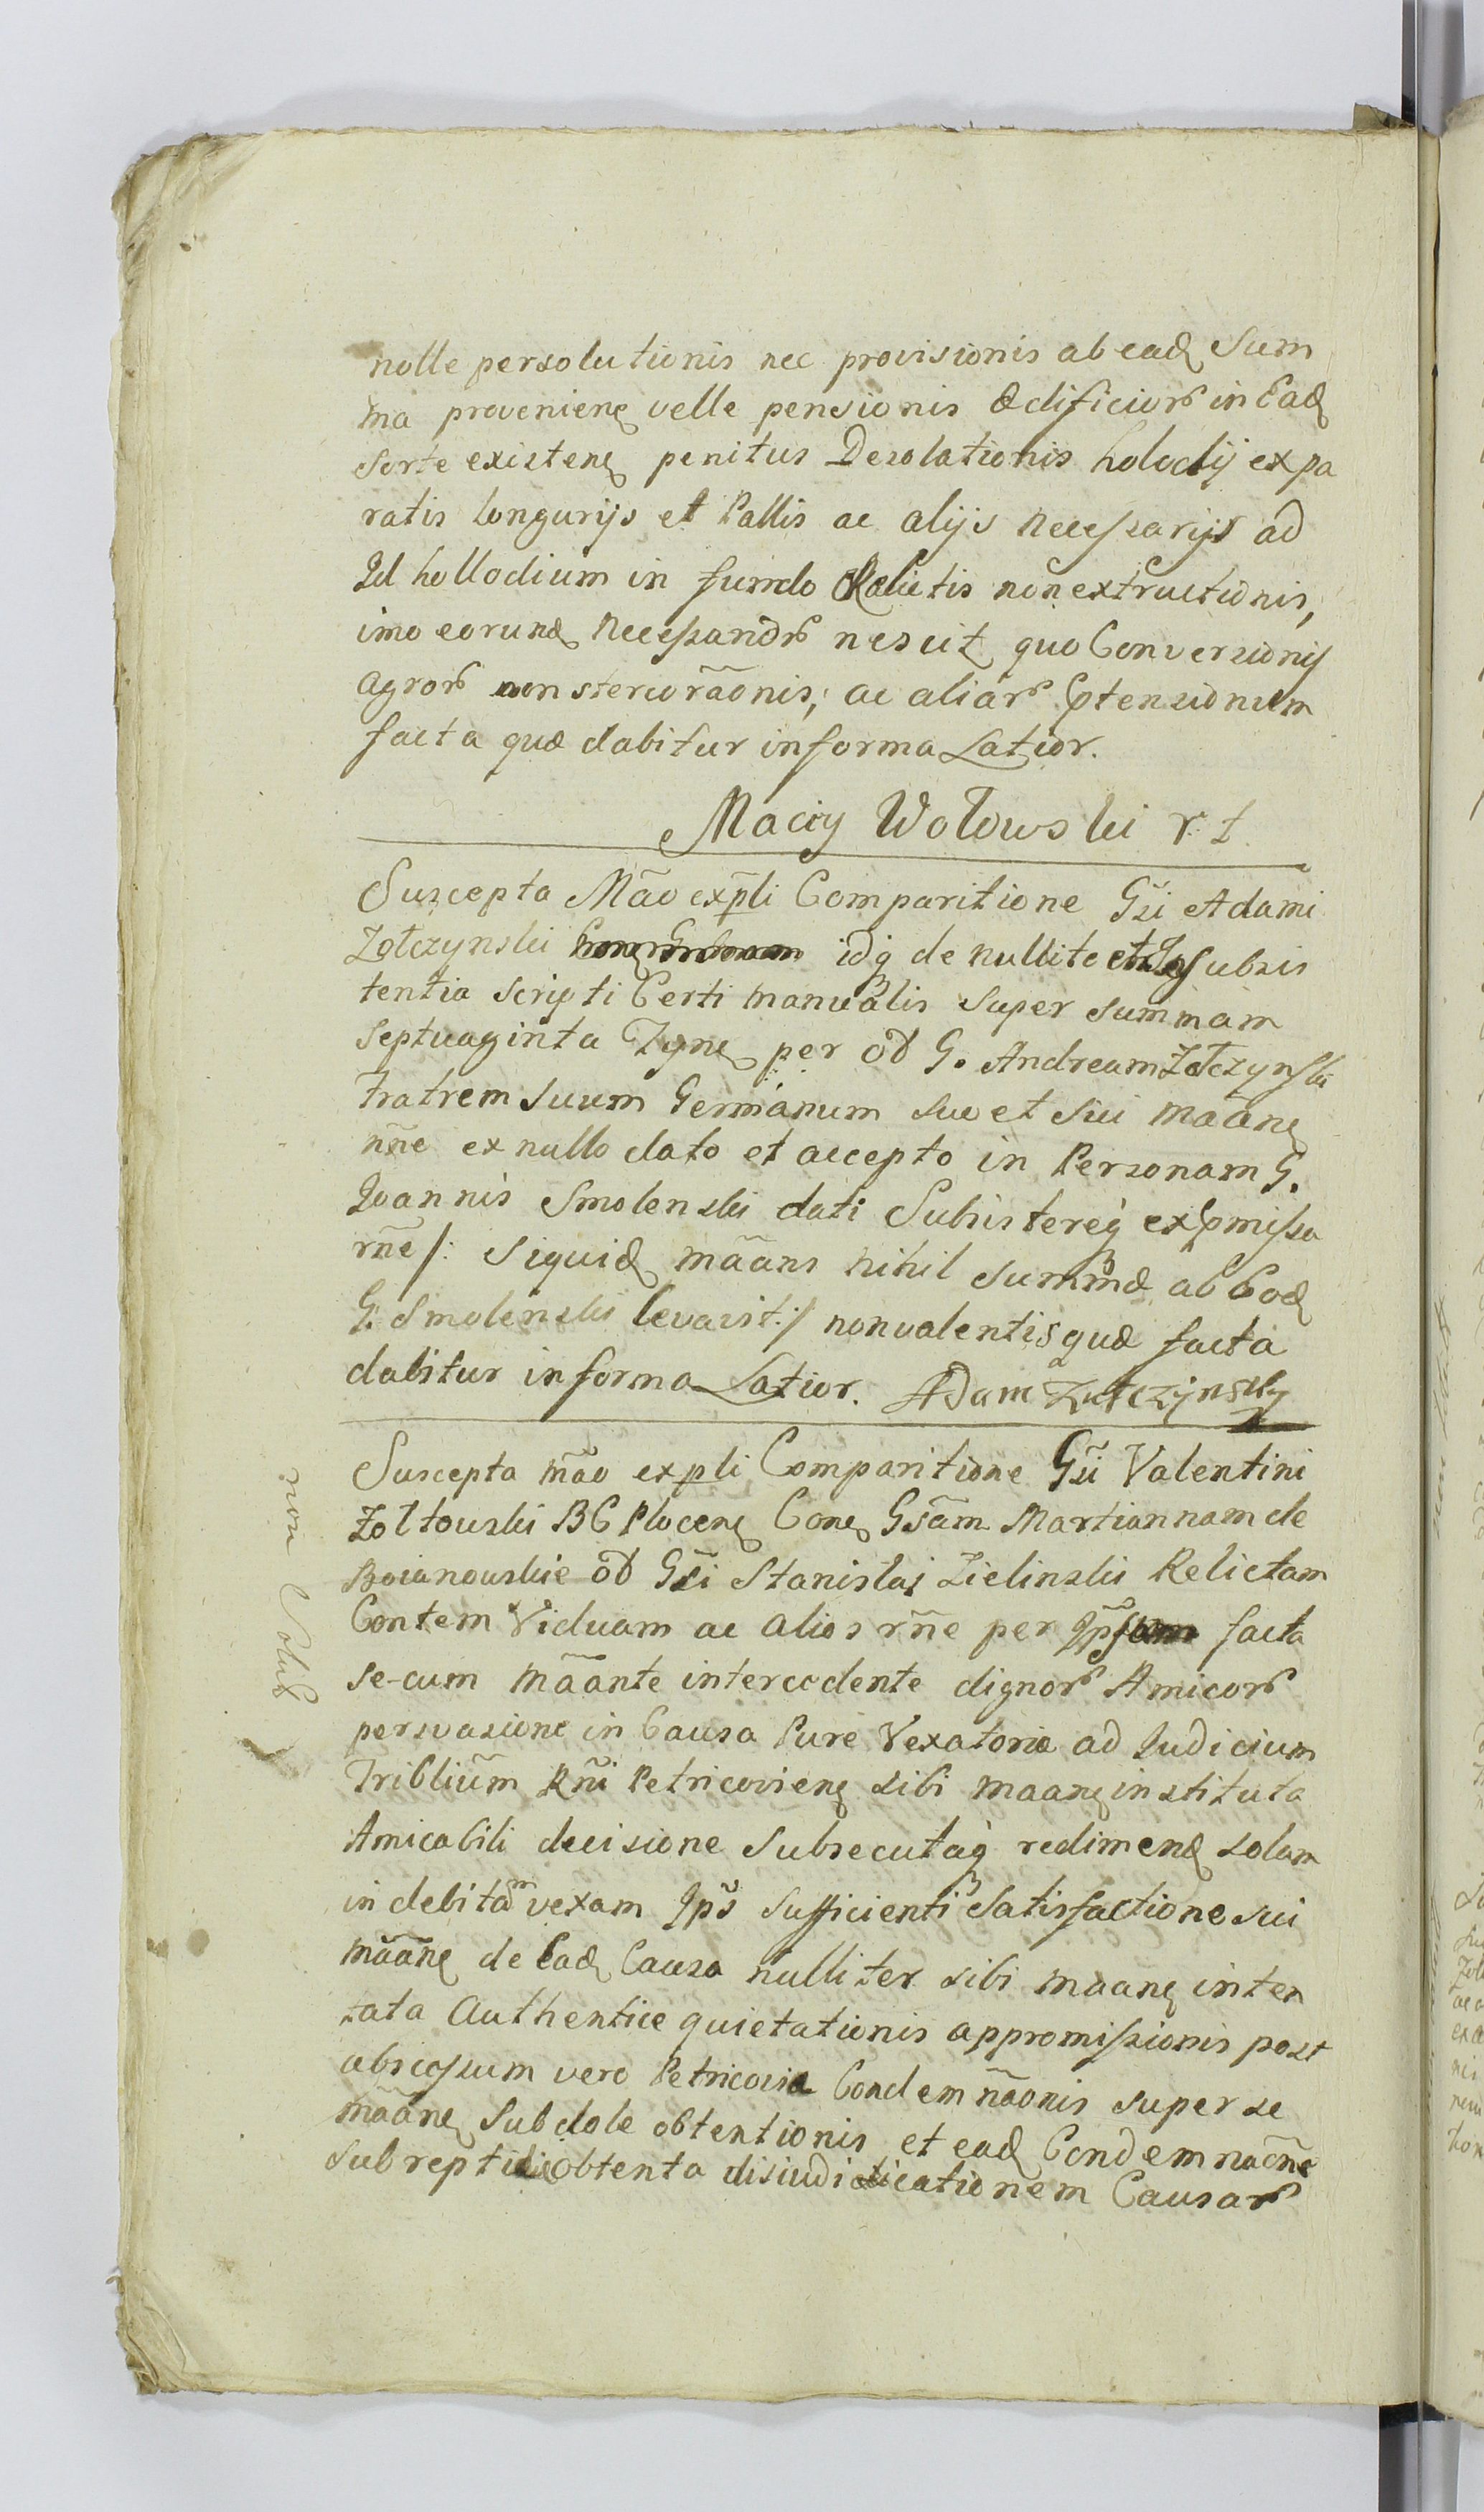 nolle persolutionis nec provisionis ab ead Sum
ma provenienē velle pensionis ædificior in Ead
Sorte existenē penitus Desolationis holodij ex pa
ratis longurijs et Pallis ac alijs necessarijs ad
Id hollodium in fundo Relictis non extructionis,
imo eorund Necessarior nescit quo Conversionis
agror non stercorãonis, ac aliar Ptensionum
facta quæ dabitur in forma Latior.
Maciy Wołowski
Suscepta Mão expli Comparitione Gsi Adami
Zołczynski idq de nullite et Insubsis
tentia scripti Certi manualis super summam
septuaginta Tynē per od G. Andream Zołczynski
fratrem suum Germanum suo et sui mãanē
nñe ex nullo dato et accepto in Personam G.
Joannis Smolenski dati Subsistereq ex Pmissa
rñe /: Siquid mãans nihil summæ ab Eod
G. Smolenski levavit :/ non valentis quæ facta
dabitur in forma Latior. Adam Zułczijnsky
Suscepta mão expli Comparitione Gsi Valentini
Zołtowski BC Plocenē Conē Gsãm Martiannam de
Boianowskie od Gsi Stanislai Zielinski Relictam
Contem Viduam ac alios rñe per facta
se-cum mãante intercedente dignor Amicor
persuasione in Causa Pure Vexatoria ad Iudicium
Triblium Rñi Petricovienē sibi maanē instituta
Amicabili decisione subsecutaq redimend solam
indebitam vexam Ips sufficienti satisfactione sui
mãanē de Ead Causa nulliter sibi maanē inten
tata Authentice quietationis appromissionis post
abscessum vero Petricovia Condemnãonis super se
mãanē Subdole obtentionis et ead Condemnaõne
subreptitie obtenta disiudicationem Causar
non Solut